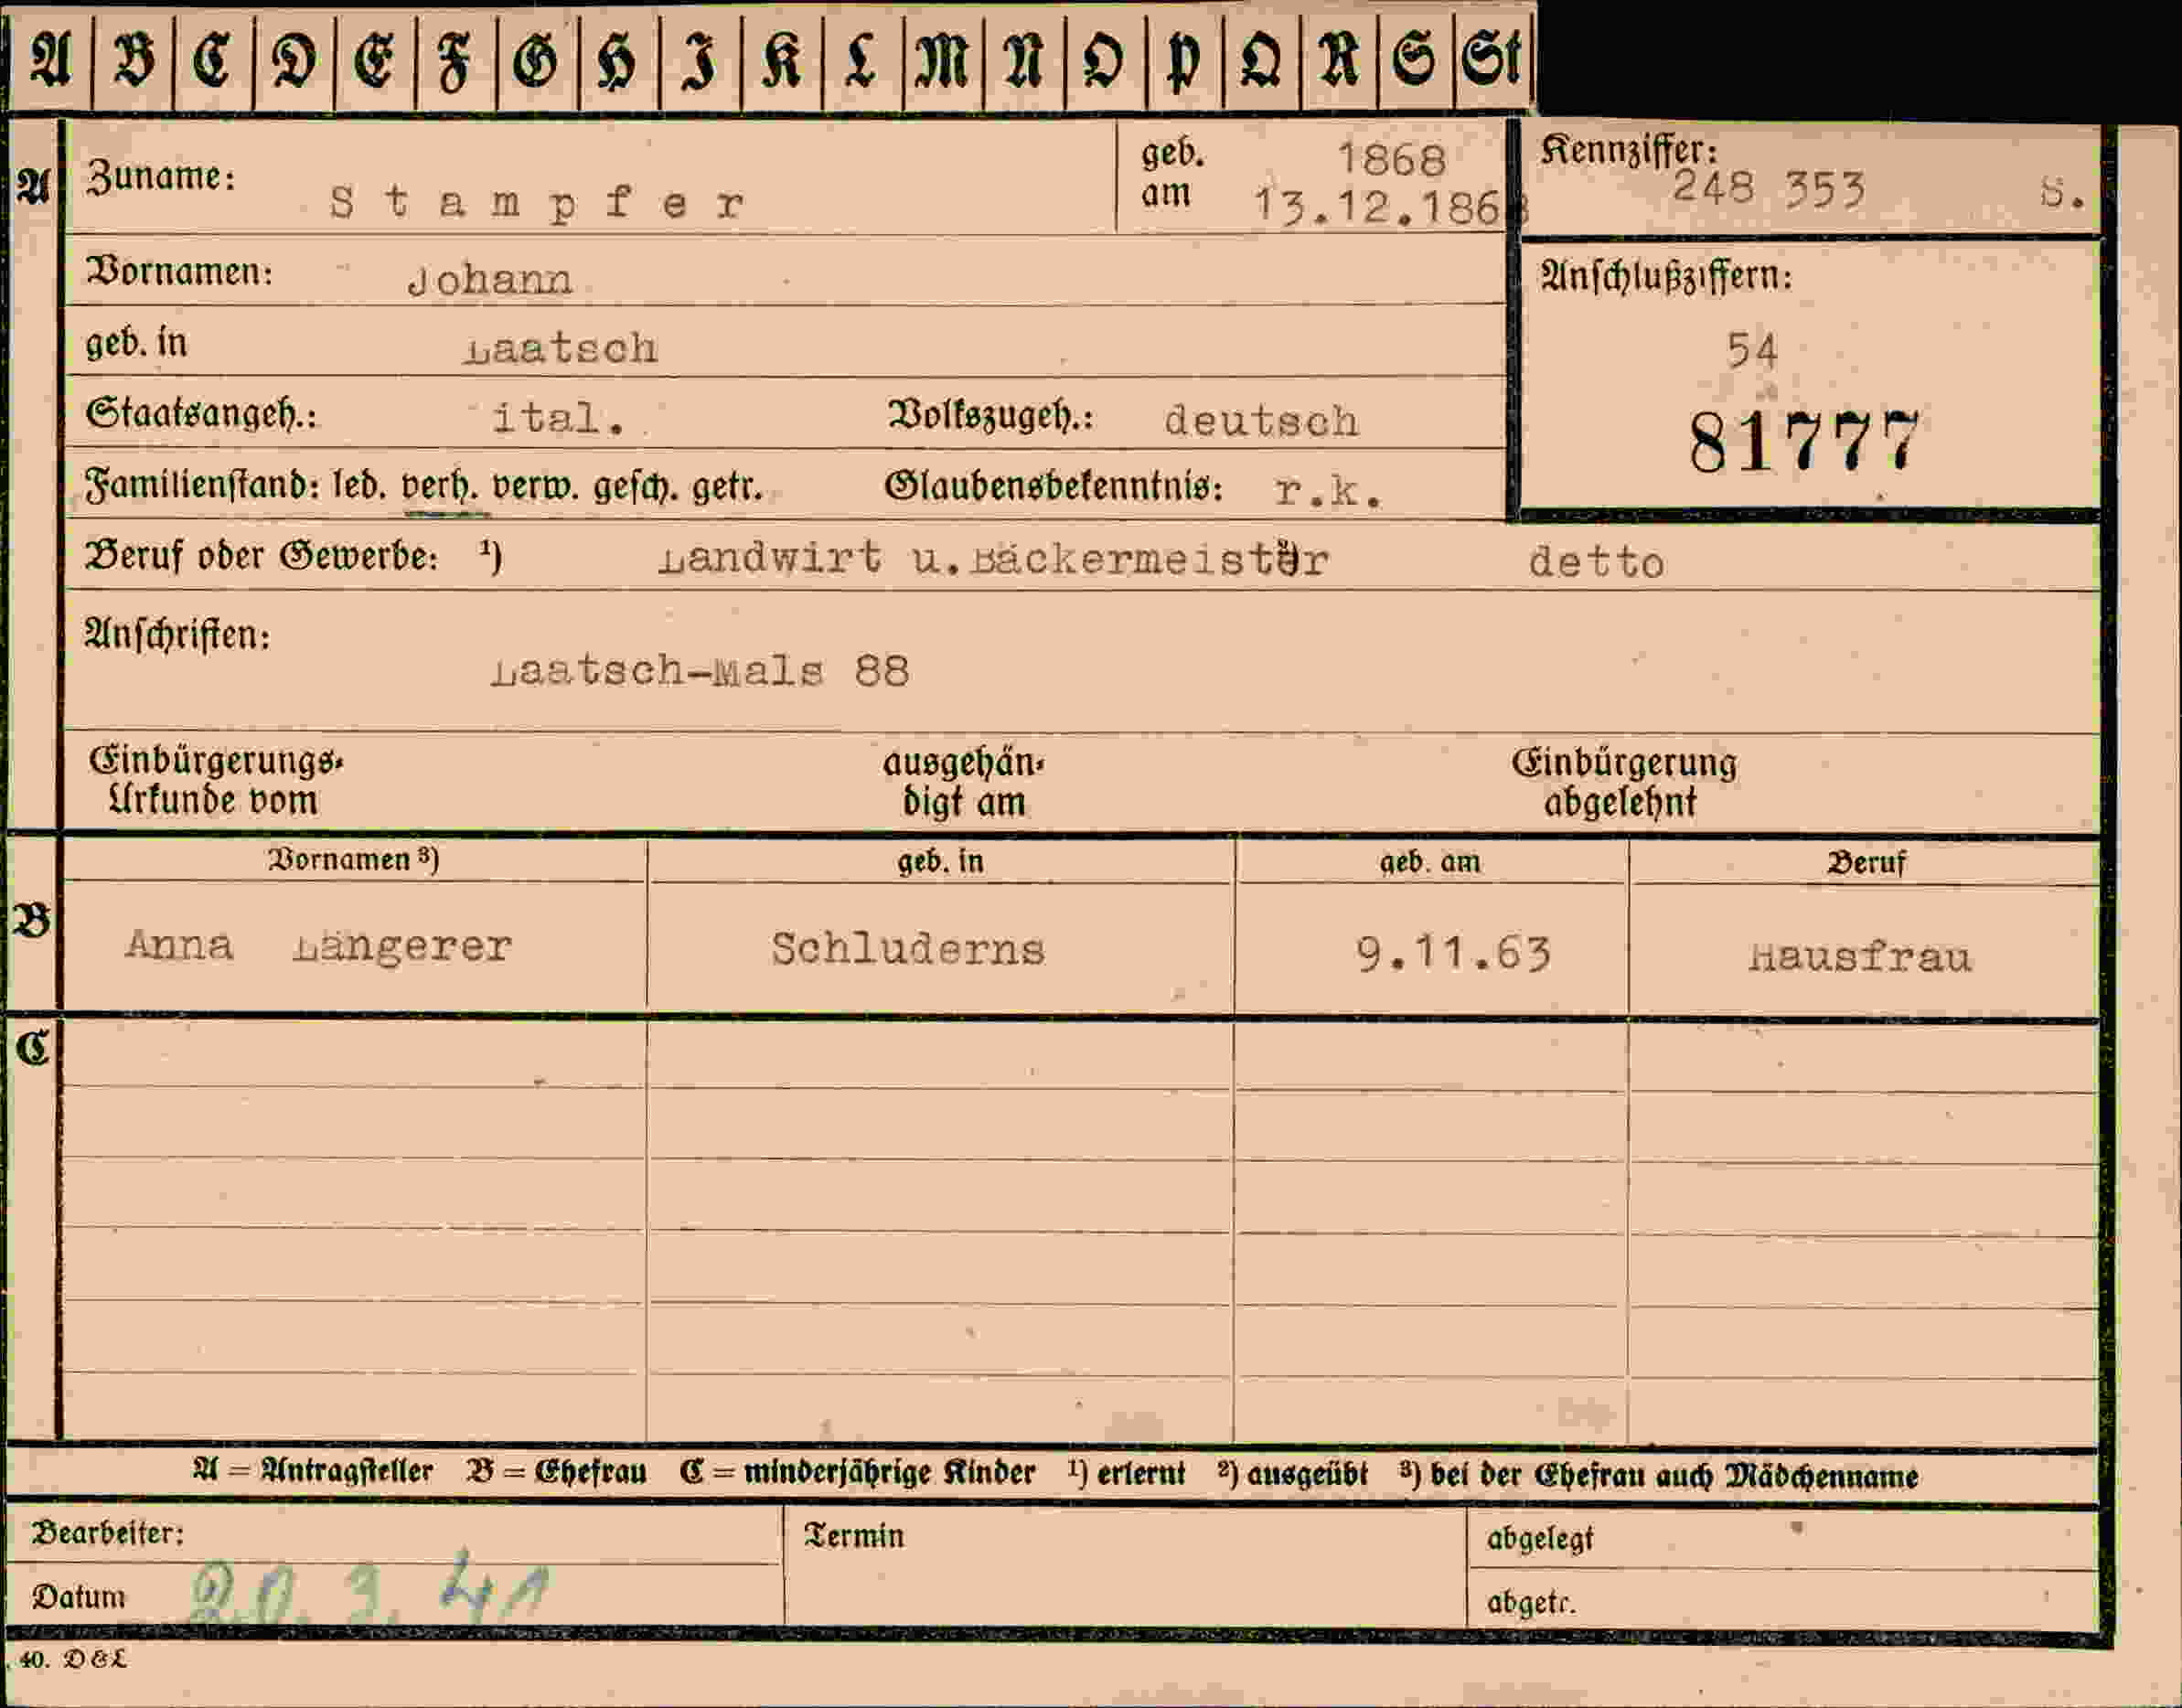 A B C D E F G H I K L M N O P Q R S St
A Zuname: Stampfer geb. am 1868 13.12.1868 Kennziffer: 248 353 S.
Vornamen: Johann
Anschlußziffern:
geb. in Laatsch 54
Staatsangeh.: ital. Volkszugeh.: deutsch 81777
Familienstand: led. verh. verw. gesch. getr. Glaubensbekenntnis: r.k.
Beruf oder Gewerbe: ¹) Landwirt u. Bäckermeister detto
Anschriften:
Laatsch-Mals 88
Einbürgerungs- ausgehän- Einbürgerung
Urkunde vom digt am abgelehnt
Vornamen ³) geb. in geb. am Beruf
B Anna Längerer Schluderns 9.11.63 Hausfrau
C
A = Antragsteller B = Ehefrau C = minderjährige Kinder ¹) erlernt ²) ausgeübt ³) bei der Ehefrau auch Mädchenname
Bearbeiter: Termin abgelegt
Datum 20.3.41 abgetr.
40. D&L